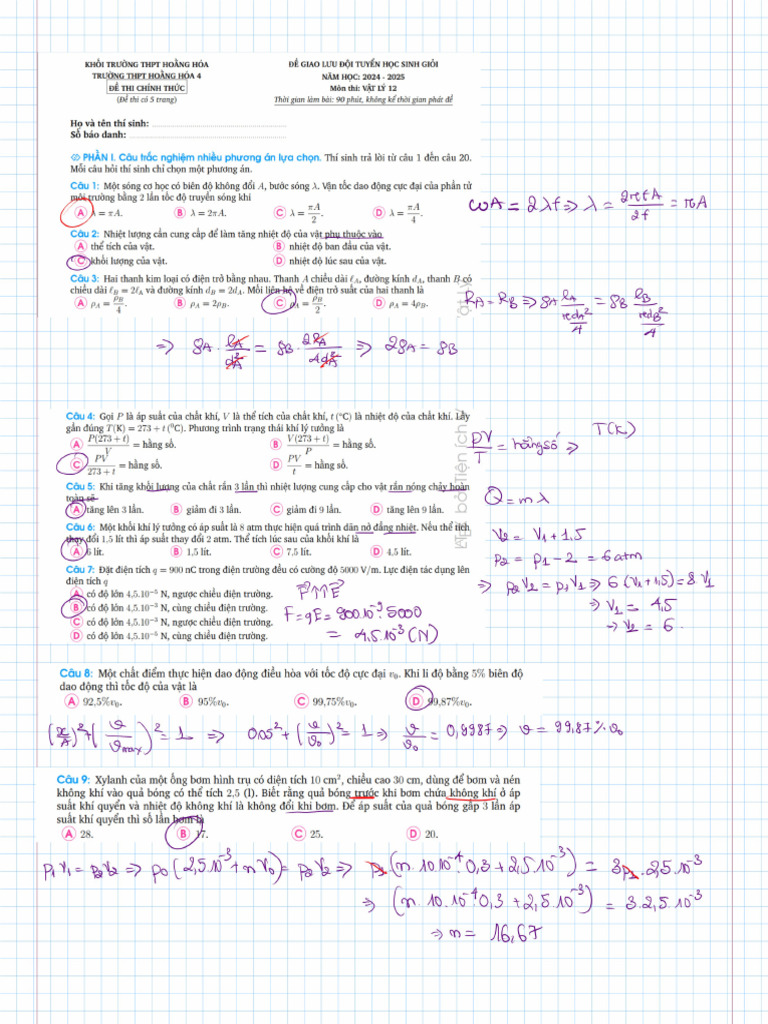 KHỐI TRƯỜNG THPT HOẰNG HÓA
TRƯỜNG THPT HOẰNG HÓA 4
ĐỀ THI CHÍNH THỨC
(Đề thi có 5 trang)
ĐỀ GIAO LƯU ĐỘI TUYỂN HỌC SINH GIỎI
NĂM HỌC: 2024 - 2025
Môn thi: VẬT LÝ 12
Thời gian làm bài: 90 phút, không kể thời gian phát đề
Họ và tên thí sinh:
Số báo danh:
PHẦN I. Câu trắc nghiệm nhiều phương án lựa chọn. Thí sinh trả lời từ câu 1 đến câu 20.
Mỗi câu hỏi thí sinh chỉ chọn một phương án.
Câu 1: Một sóng cơ học có biên độ không đổi A, bước sóng λ. Vận tốc dao động cực đại của phần tử
môi trường bằng 2 lần tốc độ truyền sóng khi
A λ = πA. B λ = 2πA. C λ = πA/2. D λ = πA/4.
ωA = 2λf ⇒ λ = 2πfA/2f = πA
Câu 2: Nhiệt lượng cần cung cấp để làm tăng nhiệt độ của vật phụ thuộc vào
A thể tích của vật. B nhiệt độ ban đầu của vật.
C khối lượng của vật. D nhiệt độ lúc sau của vật.
Câu 3: Hai thanh kim loại có điện trở bằng nhau. Thanh A chiều dài ℓA, đường kính dA, thanh B có
chiều dài ℓB = 2ℓA và đường kính dB = 2dA. Mối liên hệ về điện trở suất của hai thanh là
A ρA = ρB/4. B ρA = 2ρB. C ρA = ρB/2. D ρA = 4ρB.
RA = RB ⇒ ρA ℓA/(πdA²/4) = ρB ℓB/(πdB²/4)
⇒ ρA · ℓA/dA² = ρB · 2ℓA/4dA² ⇒ 2ρA = ρB
Câu 4: Gọi P là áp suất của chất khí, V là thể tích của chất khí, t (°C) là nhiệt độ của chất khí. Lấy
gần đúng T(K) = 273 + t (⁰C). Phương trình trạng thái khí lý tưởng là
A P(273 + t)/V = hằng số. B V(273 + t)/P = hằng số.
C PV/(273 + t) = hằng số. D PV/t = hằng số.
PV/T = hằng số ⇒ T(K)
Câu 5: Khi tăng khối lượng của chất rắn 3 lần thì nhiệt lượng cung cấp cho vật rắn nóng chảy hoàn
toàn sẽ
A tăng lên 3 lần. B giảm đi 3 lần. C giảm đi 9 lần. D tăng lên 9 lần.
Q = mλ
Câu 6: Một khối khí lý tưởng có áp suất là 8 atm thực hiện quá trình dãn nở đẳng nhiệt. Nếu thể tích
thay đổi 1,5 lít thì áp suất thay đổi 2 atm. Thể tích lúc sau của khối khí là
A 6 lít. B 1,5 lít. C 7,5 lít. D 4,5 lít.
V2 = V1 + 1,5
p2 = p1 − 2 = 6 atm
⇒ p2V2 = p1V1 ⇒ 6(V1 + 1,5) = 8V1
⇒ V1 = 4,5
⇒ V2 = 6.
Câu 7: Đặt điện tích q = 900 nC trong điện trường đều có cường độ 5000 V/m. Lực điện tác dụng lên
điện tích q
A có độ lớn 4,5.10⁻⁵ N, ngược chiều điện trường.
B có độ lớn 4,5.10⁻³ N, cùng chiều điện trường.
C có độ lớn 4,5.10⁻³ N, ngược chiều điện trường.
D có độ lớn 4,5.10⁻⁵ N, cùng chiều điện trường.
F = qE = 900.10⁻⁹.5000
= 4,5.10⁻³ (N)
Câu 8: Một chất điểm thực hiện dao động điều hòa với tốc độ cực đại v₀. Khi li độ bằng 5% biên độ
dao động thì tốc độ của vật là
A 92,5%v₀. B 95%v₀. C 99,75%v₀. D 99,87%v₀.
(x/A)² + (v/vmax)² = 1 ⇒ 0,05² + (v/v₀)² = 1 ⇒ v/v₀ = 0,9987 ⇒ v = 99,87% v₀
Câu 9: Xylanh của một ống bơm hình trụ có diện tích 10 cm², chiều cao 30 cm, dùng để bơm và nén
không khí vào quả bóng có thể tích 2,5 (l). Biết rằng quả bóng trước khi bơm chứa không khí ở áp
suất khí quyển và nhiệt độ không khí là không đổi khi bơm. Để áp suất của quả bóng gấp 3 lần áp
suất khí quyển thì số lần bơm là
A 28. B 17. C 25. D 20.
p1V1 = p2V2 ⇒ p0(2,5.10⁻³ + nV0) = p2V2 ⇒ p1(n.10.10⁻⁴.0,3 + 2,5.10⁻³) = 3p1.2,5.10⁻³
⇒ (n.10.10⁻⁴.0,3 + 2,5.10⁻³) = 3.2,5.10⁻³
⇒ n = 16,67